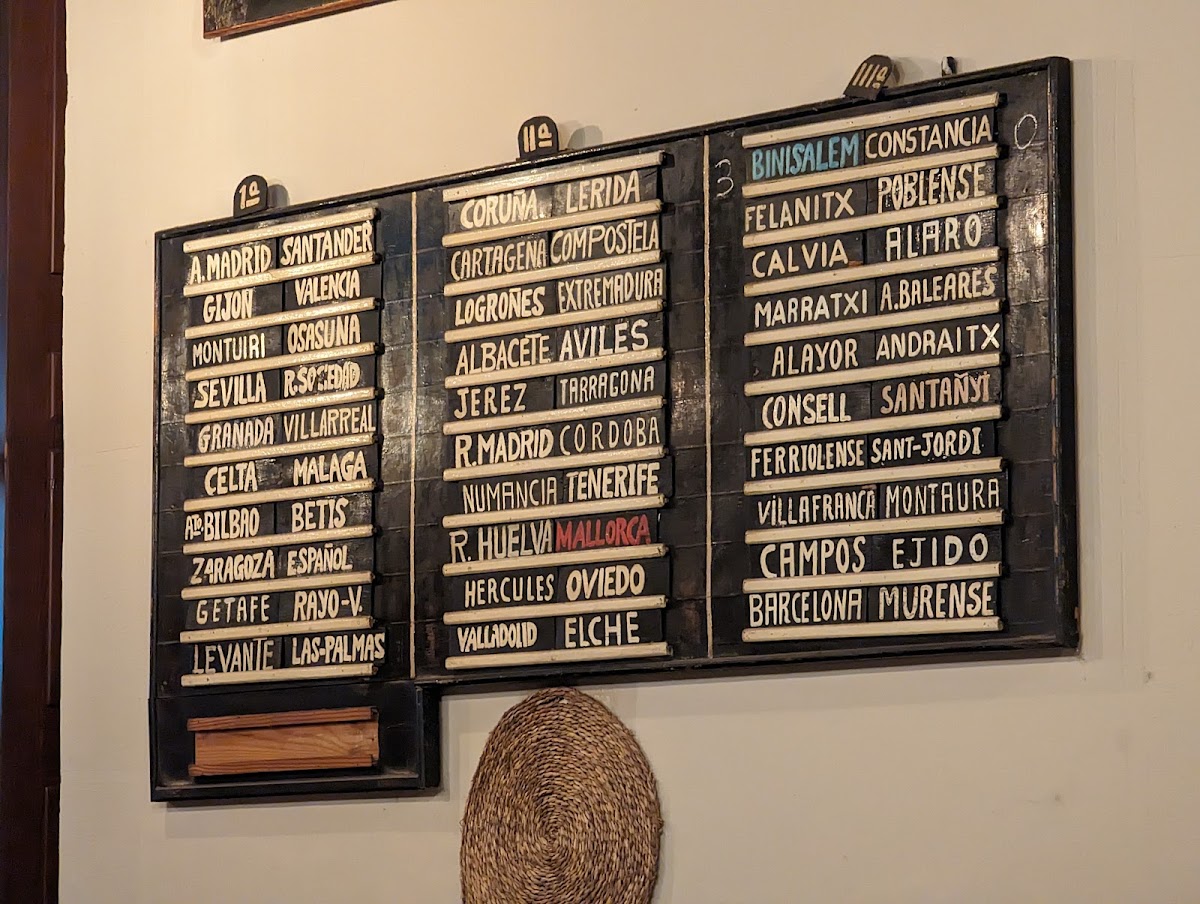 1ª
A.MADRID SANTANDER
GIJON VALENCIA
MONTUIRI OSASUNA
SEVILLA R.SOCIEDAD
GRANADA VILLARREAL
CELTA MALAGA
ATO.BILBAO BETIS
ZARAGOZA ESPAÑOL
GETAFE RAYO-V.
LEVANTE LAS-PALMAS
IIª
CORUÑA. LERIDA
CARTAGENA COMPOSTELA
LOGROÑES EXTREMADURA
ALBACETE AVILES
JEREZ TARRAGONA
R.MADRID CORDOBA
NUMANCIA TENERIFE
R.HUELVA MALLORCA
HERCULES OVIEDO
VALLADOLID ELCHE
IIIª
3 BINISALEM CONSTANCIA 0
FELANITX POBLENSE
CALVIA ALARO
MARRATXI A.BALEARES
ALAYOR ANDRAITX
CONSELL SANTAÑYI
FERRIOLENSE SANT-JORDI
VILLAFRANCA MONTAURA
CAMPOS EJIDO
BARCELONA MURENSE